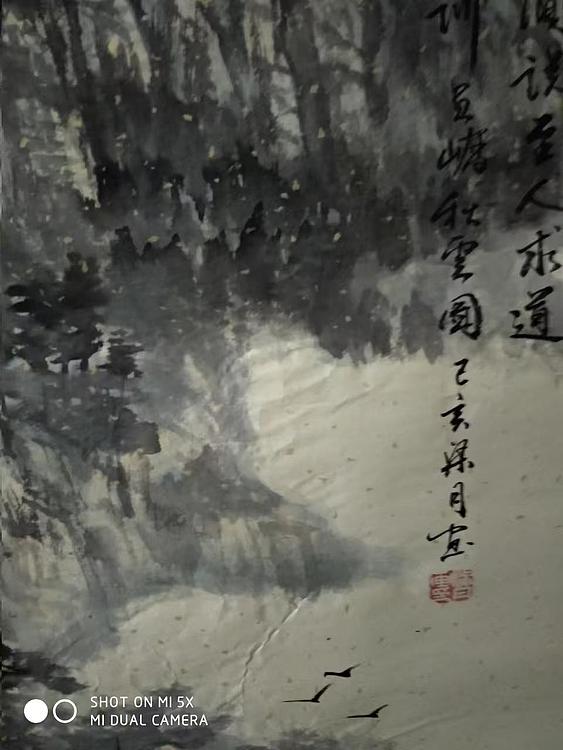 演說至人求道
訓 亘嶓秋雲圖 己亥梁月畫
SHOT ON MI 5X
MI DUAL CAMERA